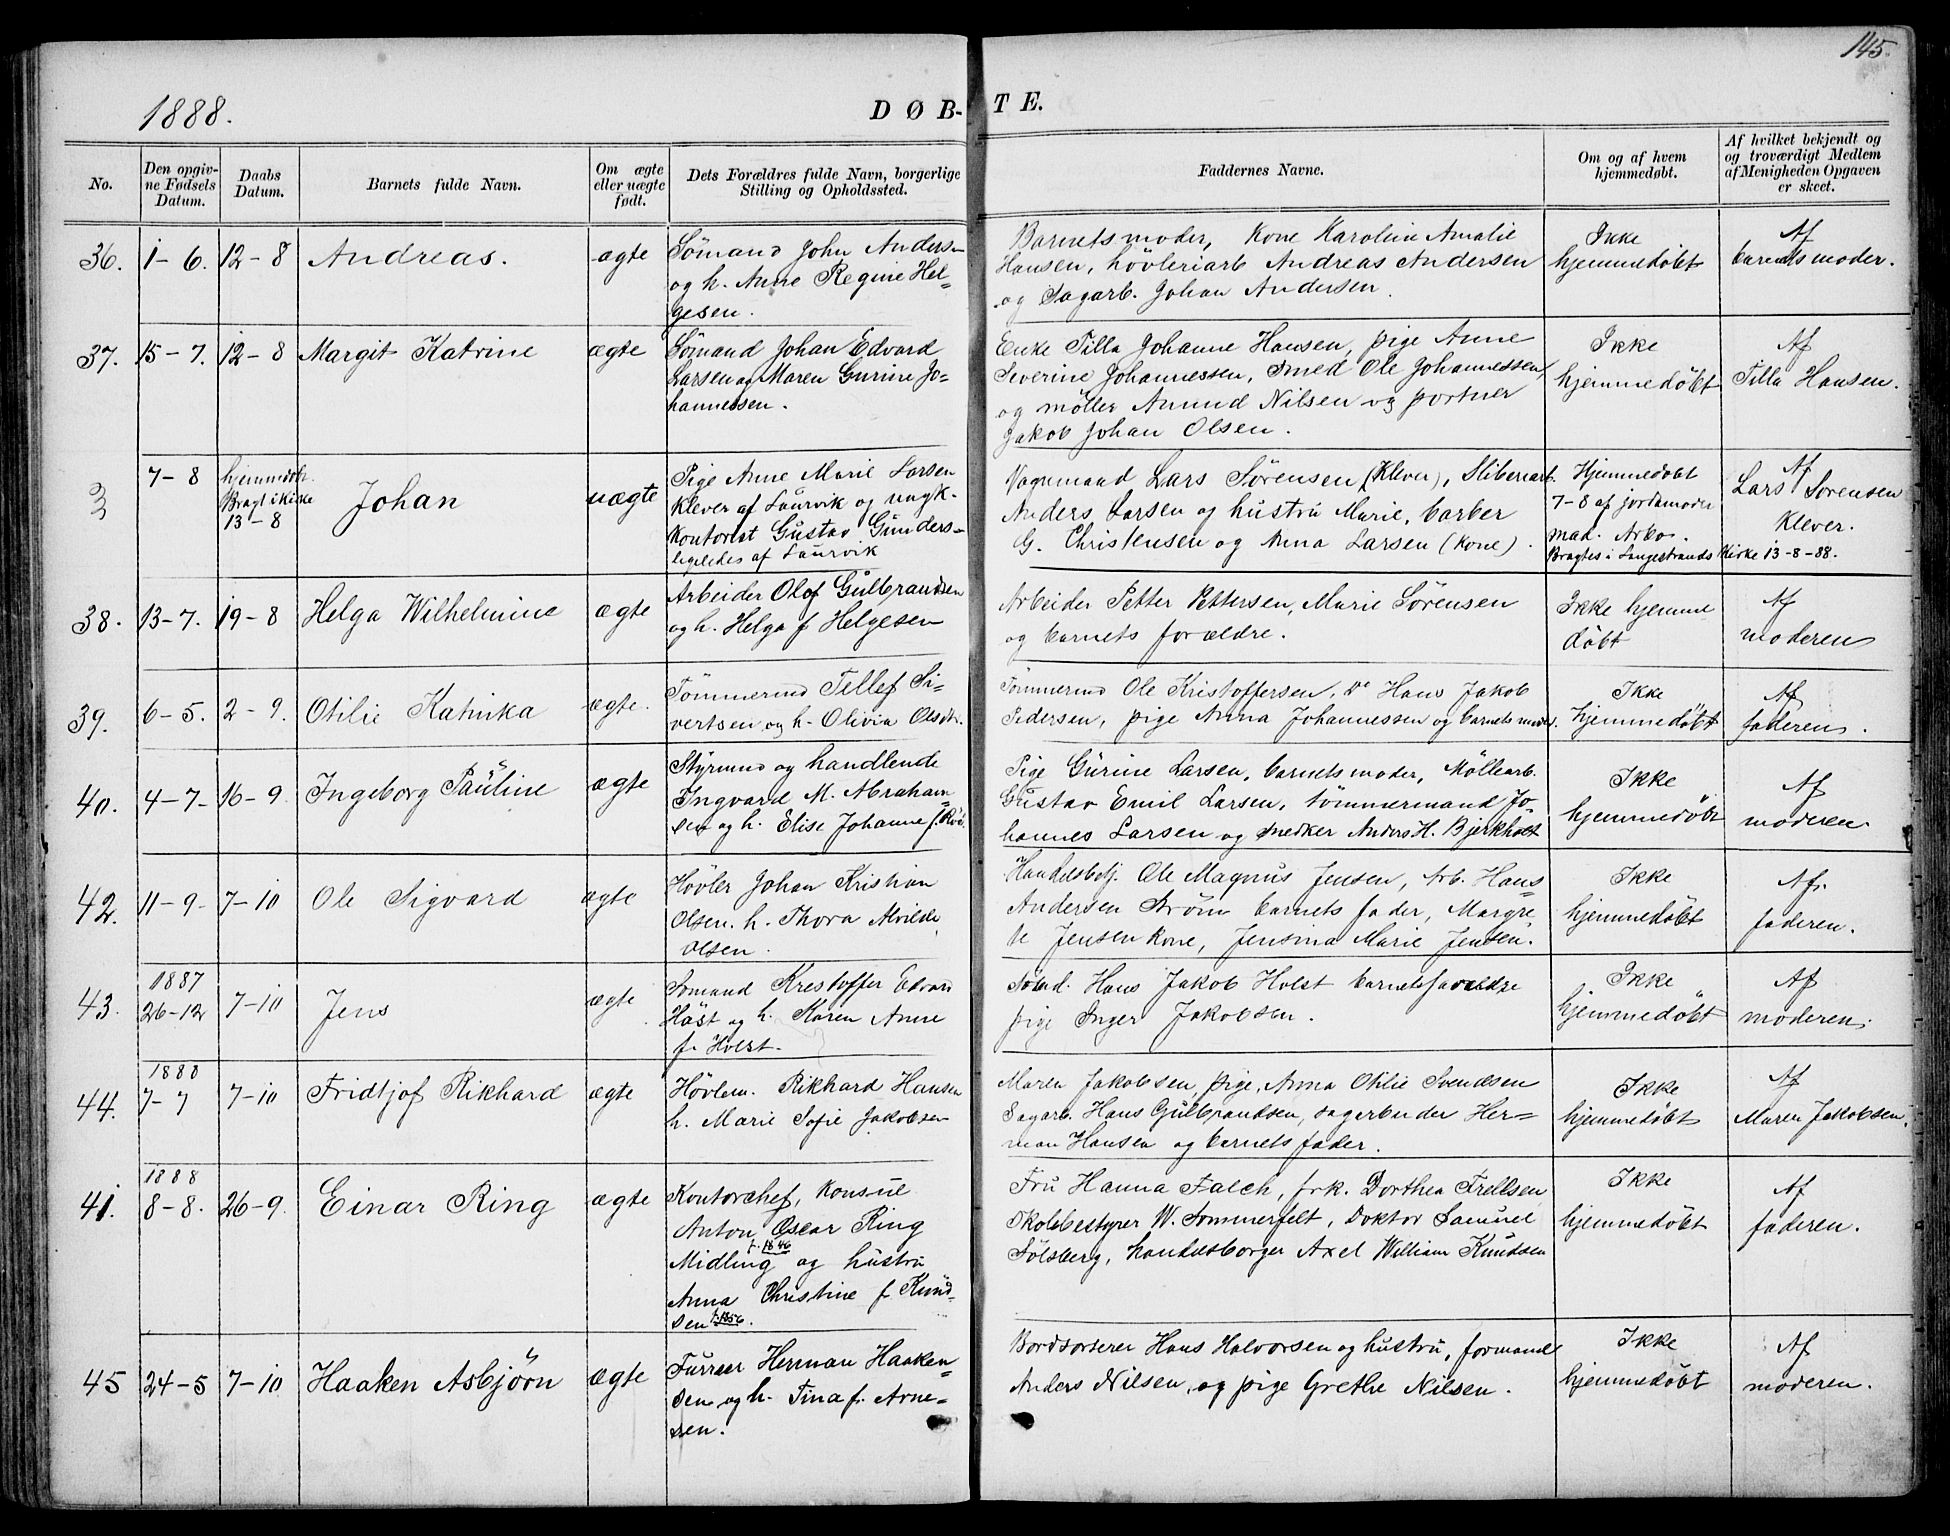 145.
1888.
DØBTE.
No.
Den opgiv-
ne Fødsels
Datum.
Daabs
Datum.
Barnets fulde Navn.
Om ægte
eller uægte
født.
Dets Forældres fulde Navn, borgerlige
Stilling og Opholdssted.
Faddernes Navne.
Om og af hvem
hjemmedøbt.
Af hvilket bekjendt og
og troværdigt Medlem
af Menigheden Opgaven
er skeet.
36. 1-6. 12-8 Andreas. ægte
Sømand John Andersen
og h. Anne Regine Hel-
gesen.
Barnets moder, Kone Karoline Amalie
Hansen, høvleriarb Andreas Andersen
og Sagarb. Johan Andersen.
Ikke
hjemmedøbt
Af
barnets moder.
37. 15-7. 12-8 Margit Katrine ægte
Sømand Johan Edvard
Larsen og Maren Gurine Jo-
hannessen.
Enke Tilla Johanne Hansen, pige Anne
Severine Johannessen, smed Ole Johannessen,
og møller Anund Nilsen og portner
Jakob Johan Olsen.
Ikke
hjemmedøbt
Af
Tilla Hansen.
3 7-8
hjemmedøbt.
Bragt i Kirke
13-8
Johan uægte
Pige Anne Marie Larsen
Klever af Laurvik og ungk.
Kontorist Gustav Gunders-
ligeledes af Laurvik
Vognmand Lars Sørensen (Klever), Sliberiarb.
Anders Larsen og hustru Marie, barber
G. Christensen og Anna Larsen (Kone).
Hjemmedøbt
7-8 af jordmoder
mad. Arbo.
Bragtes i Langestrands Kirke 13-8-88.
Af
Lars Sørensen
Klever.
38. 13-7. 19-8 Helga Wilhelmine ægte
Arbeider Olof Gulbrandsen
og h. Helga f. Helgesen
Arbeider Petter Pettersen, Marie Sørensen
og barnets forældre.
Ikke hjemme
døbt
Af
moderen
39. 6-5. 2-9. Otilie Katinka ægte.
Tømmermd Tellef Si-
vertsen og h. Olivia Olsdtr.
Tømmermd Ole Kristoffersen, Do Hans Jakob
Pedersen, pige Anna Johannessen og barnets moder.
Ikke
hjemmedøbt
Af
faderen.
40. 4-7. 16-9. Ingeborg Pauline ægte
Styrmnd og handlende
Ingvard M. Abraham-
sen og h. Elise Johanne f.
Pige Gurine Larsen, barnets moder, Møllearb.
Gustav Emil Larsen, tømmermand Jo-
hannes Larsen og snedker Anders H. Bjerkholt
Ikke
hjemmedøbt
Af
moderen.
42. 11-9. 7-10 Ole Sigvard ægte
Høvler Johan Kristian
Olsen. h. Thora Alvilde
Olsen.
Handelsbetj. Ole Magnus Jensen, Arb. Hans
Andersen Strøm barnets fader, Margre
te Jensen kone, Jensina Marie Jensen.
Ikke
hjemmedøbt
Af
faderen.
43.
1887
26-12 7-10 Jens ægte
Sømand Kristoffer Edvard
Høst og h. Karen Anne
f. Holst.
Sømd. Hans Jakob Holst barnets forældre
pige Inger Jakobsen.
Ikke
hjemmedøbt
Af
moderen.
44.
1888
7-7 7-10 Fridtjof Rikhard ægte
Høvlem. Rikhard Hansen
h. Marie Sofie Jakobsen
Maren Jakobsen, pige, Anna Otilie Svendsen
Sagarb. Hans Gulbrandsen, sagarbeider Her-
man Hansen og barnets fader.
Ikke
hjemmedøbt
Af
Maren Jakobsen.
41.
1888
8-8. 26-9. Einar Ring ægte
Kontorchef, Konsul
Anton Oscar Ring
f. 1846
Midling og hustru
Anna Christine f. Knud-
sen f. 1856.
Fru Hanna Falch, frk. Dorthea Trellsen
Skolebestyrer W. Sommerfelt, Doktor Samuel
Sølsberg, handelsborger Axel William Knudsen
Ikke
hjemmedøbt
Af
faderen.
45 24-5 7-10 Haaken Asbjørn ægte
Furrer Herman Haaken-
sen og h. Tina f. Arne-
sen.
Bordsorterer Hans Halvorsen og hustru, formand
Anders Nilsen, og pige Grethe Nilsen.
Ikke
hjemmedøbt
Af
moderen.